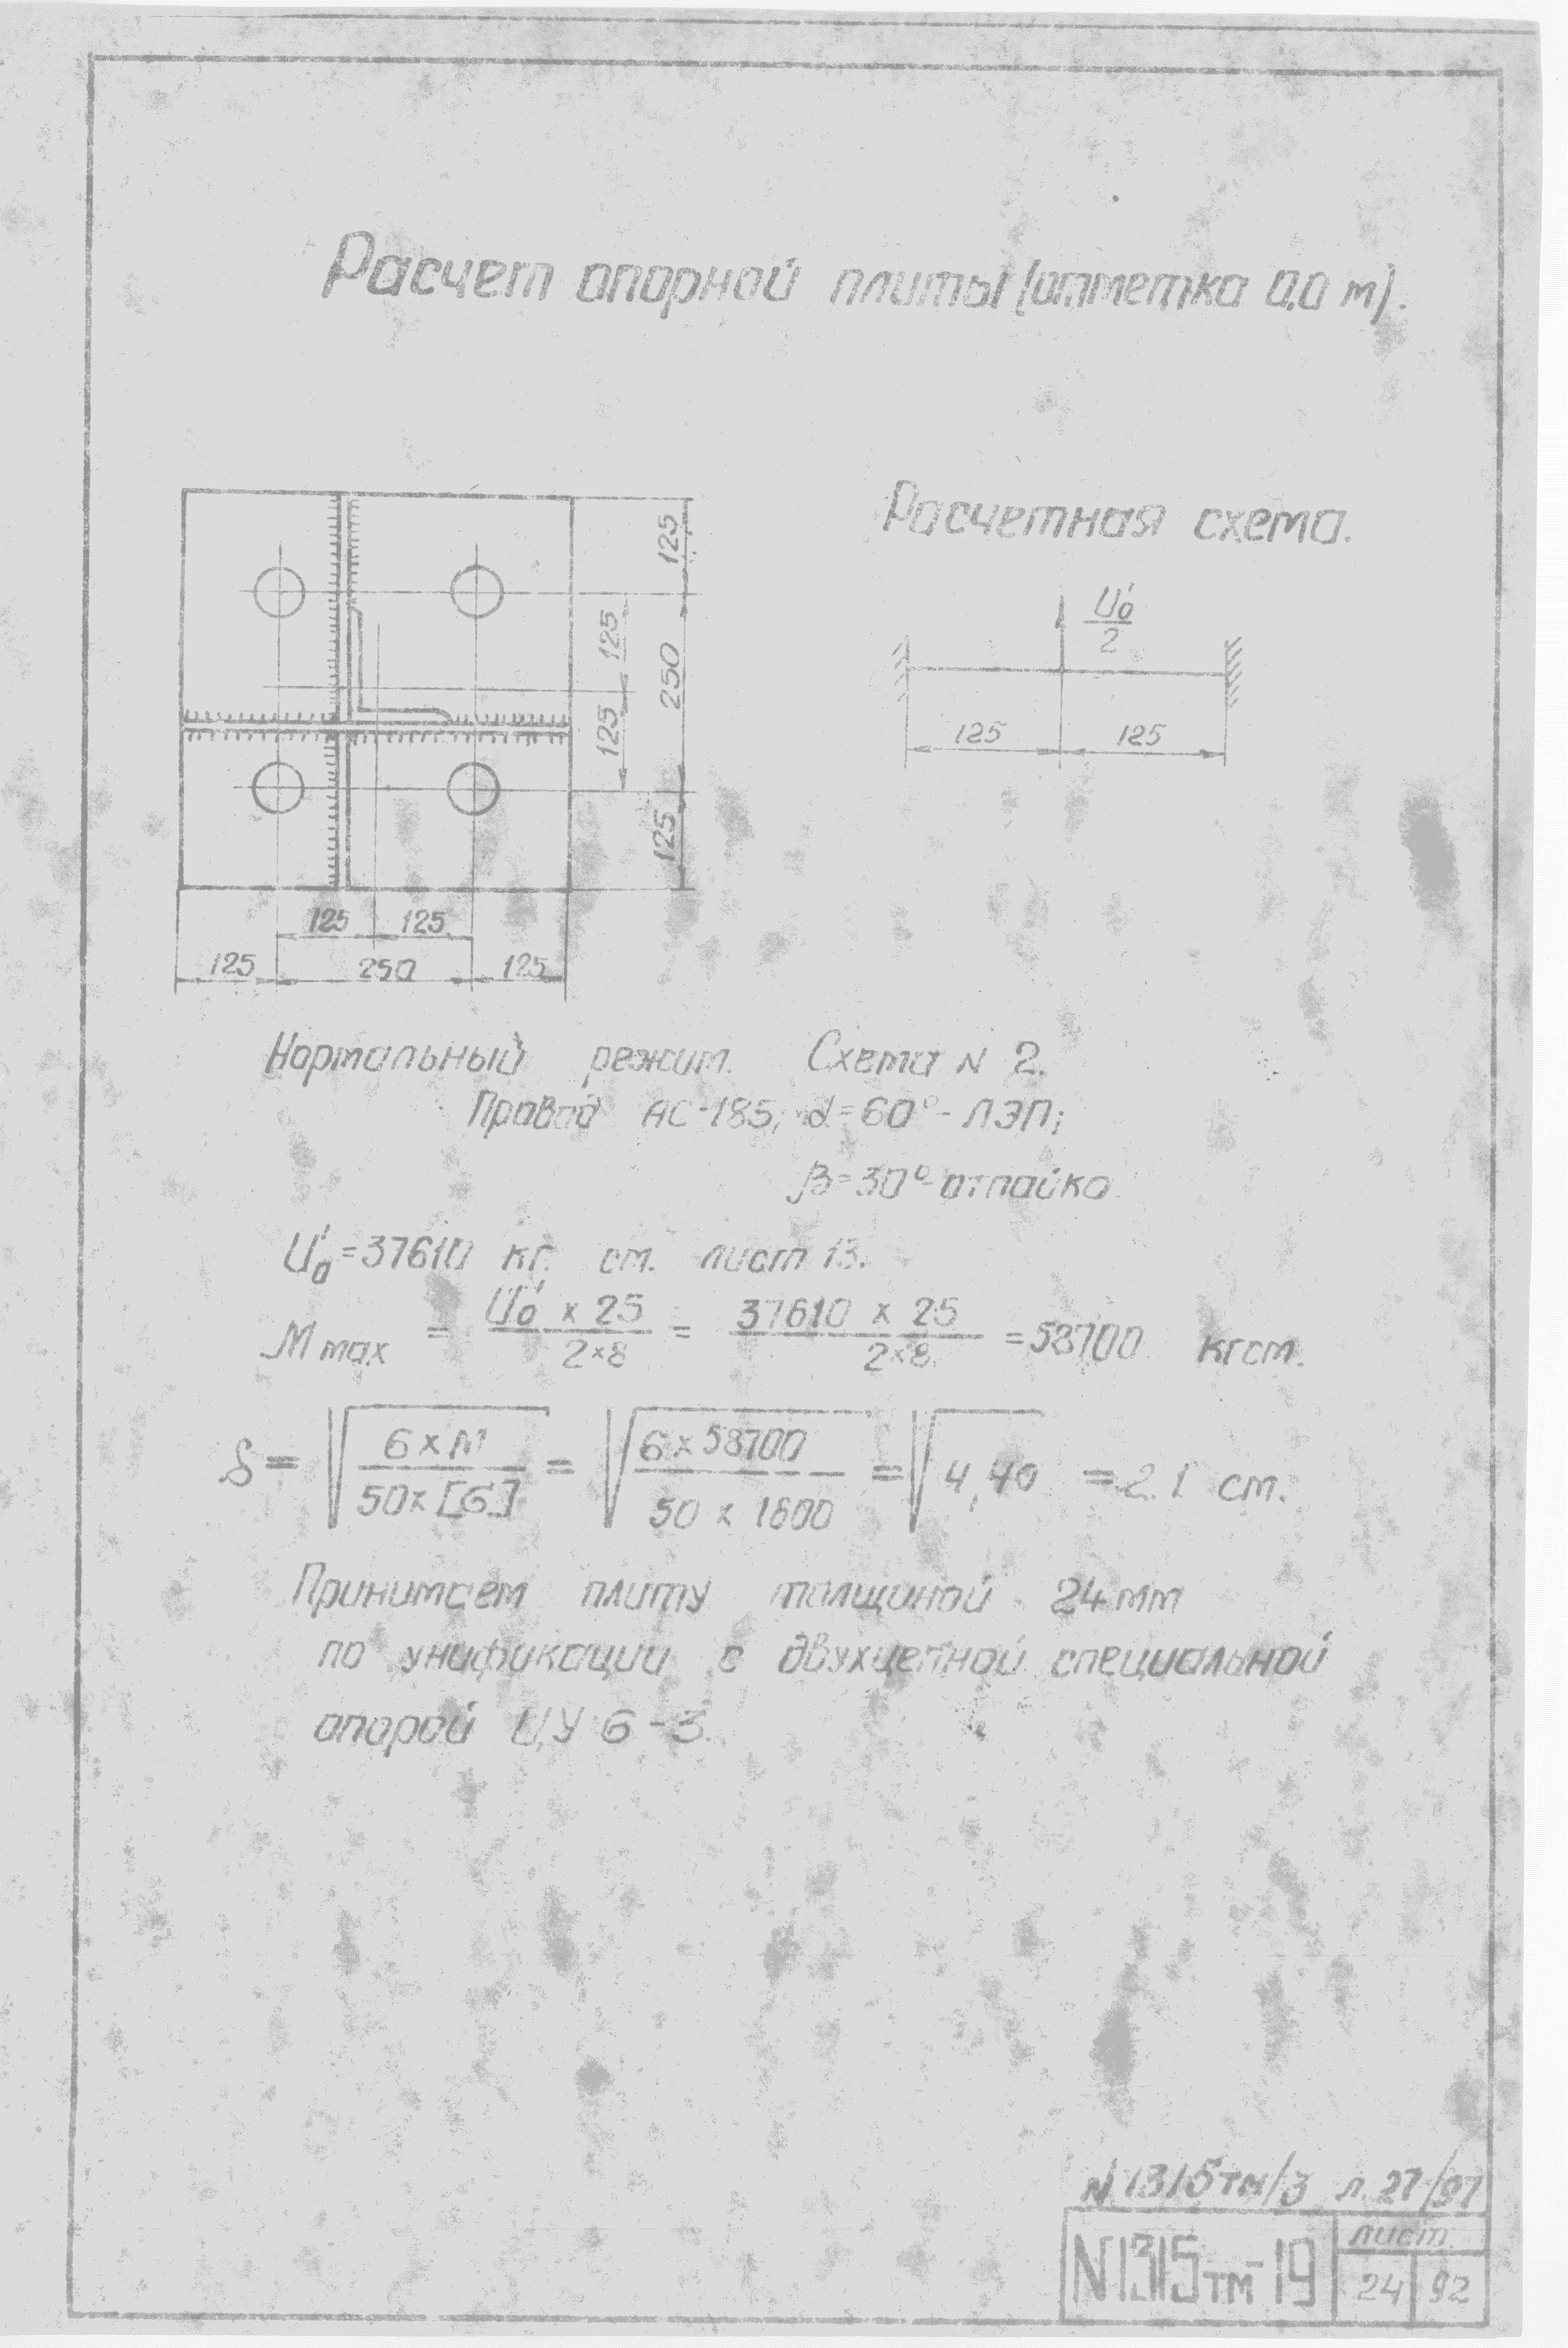 Расчет опорной плиты (отметка 0.0 м).
Расчетная схема.
U'о
2
125
125
125
250
125
125
125
125
125
125
125
250
125
Нормальный режим. Схема N 2.
Провод АС-185; α=60° - ЛЭП;
β=30° - отпайка
U'о = 37610 кг. см. лист 13.
M max = U'о x 25 / 2x8 = 37610 x 25 / 2x8 = 58700 кгсм.
δ = √ 6 x M / 50 x [σ] = √ 6 x 58700 / 50 x 1600 = √ 4,40 = 2.1 см.
Принимаем плиту толщиной 24 мм
по унификации с двухцепной специальной
опорой ЦУ 6-3.
N 1315тм/3 л. 27/97
N1315тм-19
лист
24 92